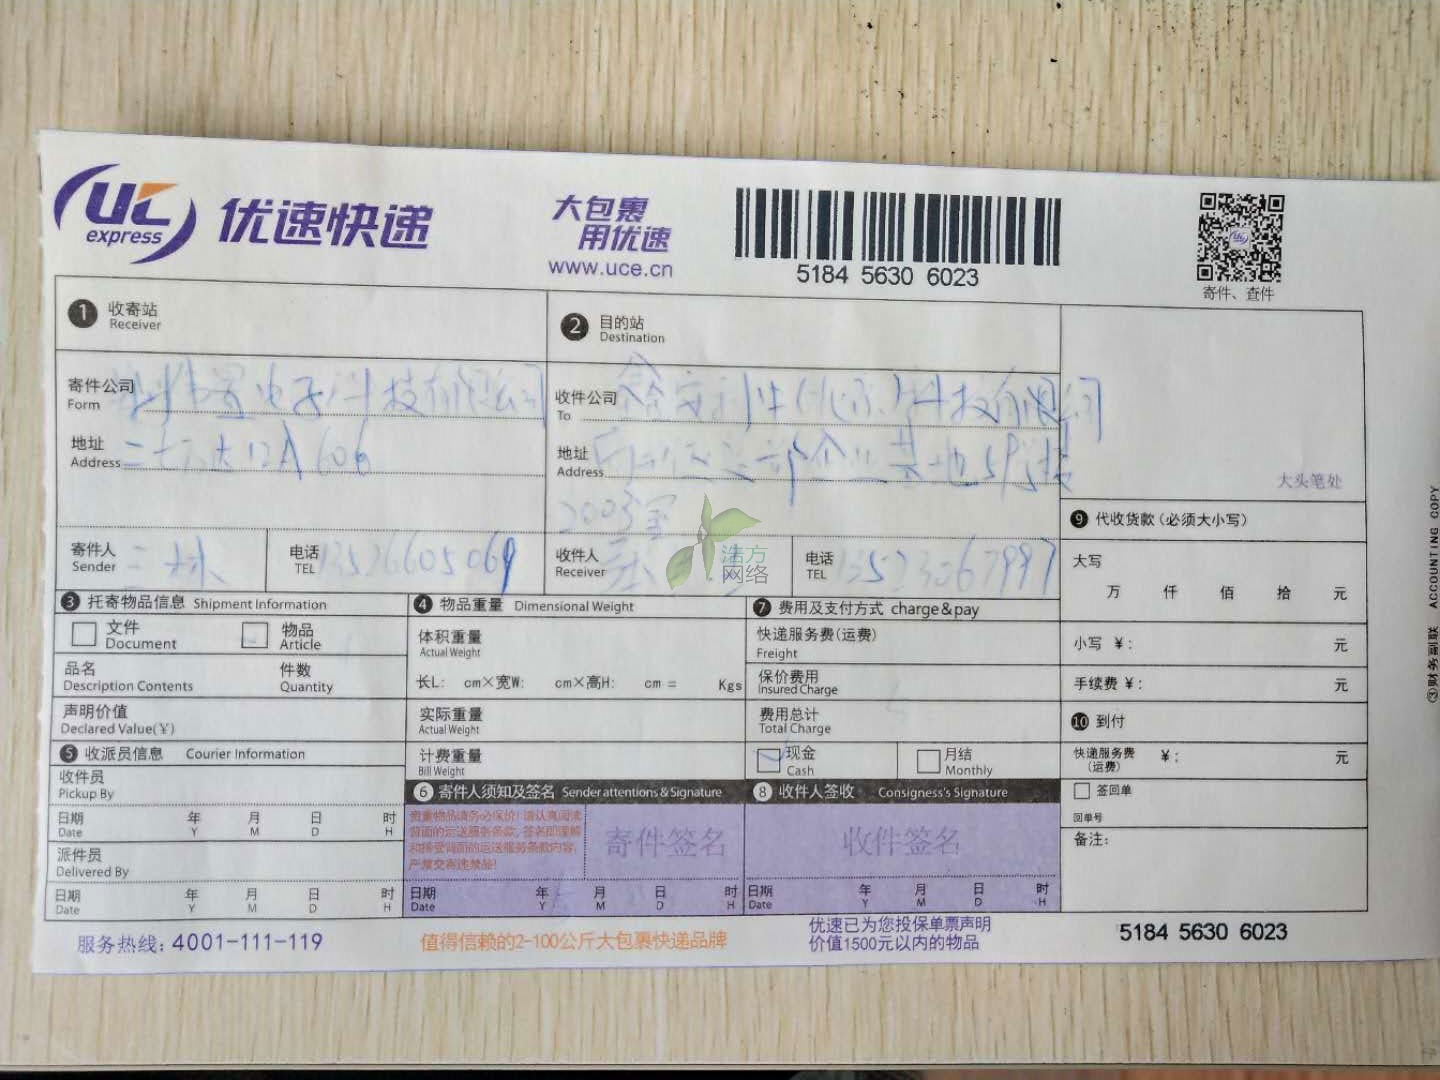 UC
express
优速快递
大包裹
用优速
www.uce.cn
5184 5630 6023
寄件、查件
1 收寄站
Receiver
2 目的站
Destination
寄件公司
Form
电子科技有限公司
收件公司
To
科技有限公司
地址
Address
12A 606
地址
Address
企业基地
2003室
大头笔处
寄件人
Sender
电话
TEL
13526605069
收件人
Receiver
电话
TEL
浩方
网络
3 托寄物品信息 Shipment Information
文件
Document
物品
Article
品名
Description Contents
件数
Quantity
声明价值
Declared Value(¥)
4 物品重量 Dimensional Weight
体积重量
Actual Weight
长L: cm×宽W: cm×高H: cm = Kgs
实际重量
Actual Weight
计费重量
Bill Weight
7 费用及支付方式 charge&pay
快递服务费(运费)
Freight
保价费用
Insured Charge
费用总计
Total Charge
现金
Cash
月结
Monthly
9 代收货款(必须大小写)
大写
万 仟 佰 拾 元
小写 ¥: 元
手续费 ¥: 元
10 到付
快递服务费
(运费)
¥: 元
签回单
回单号
备注:
5 收派员信息 Courier Information
收件员
Pickup By
日期 年 月 日 时
Date Y M D H
派件员
Delivered By
日期 年 月 日 时
Date Y M D H
6 寄件人须知及签名 Sender attentions & Signature
贵重物品请务必保价!请认真阅读
背面的运送服务条款,签名即理解
和接受背面的运送服务条款内容,
严禁交寄违禁品!
寄件签名
日期 年 月 日 时
Date Y M D H
8 收件人签收 Consigness's Signature
收件签名
日期 年 月 日 时
Date Y M D H
服务热线: 4001-111-119
值得信赖的2-100公斤大包裹快递品牌
优速已为您投保单票声明
价值1500元以内的物品
5184 5630 6023
③财务副联 ACCOUNTING COPY